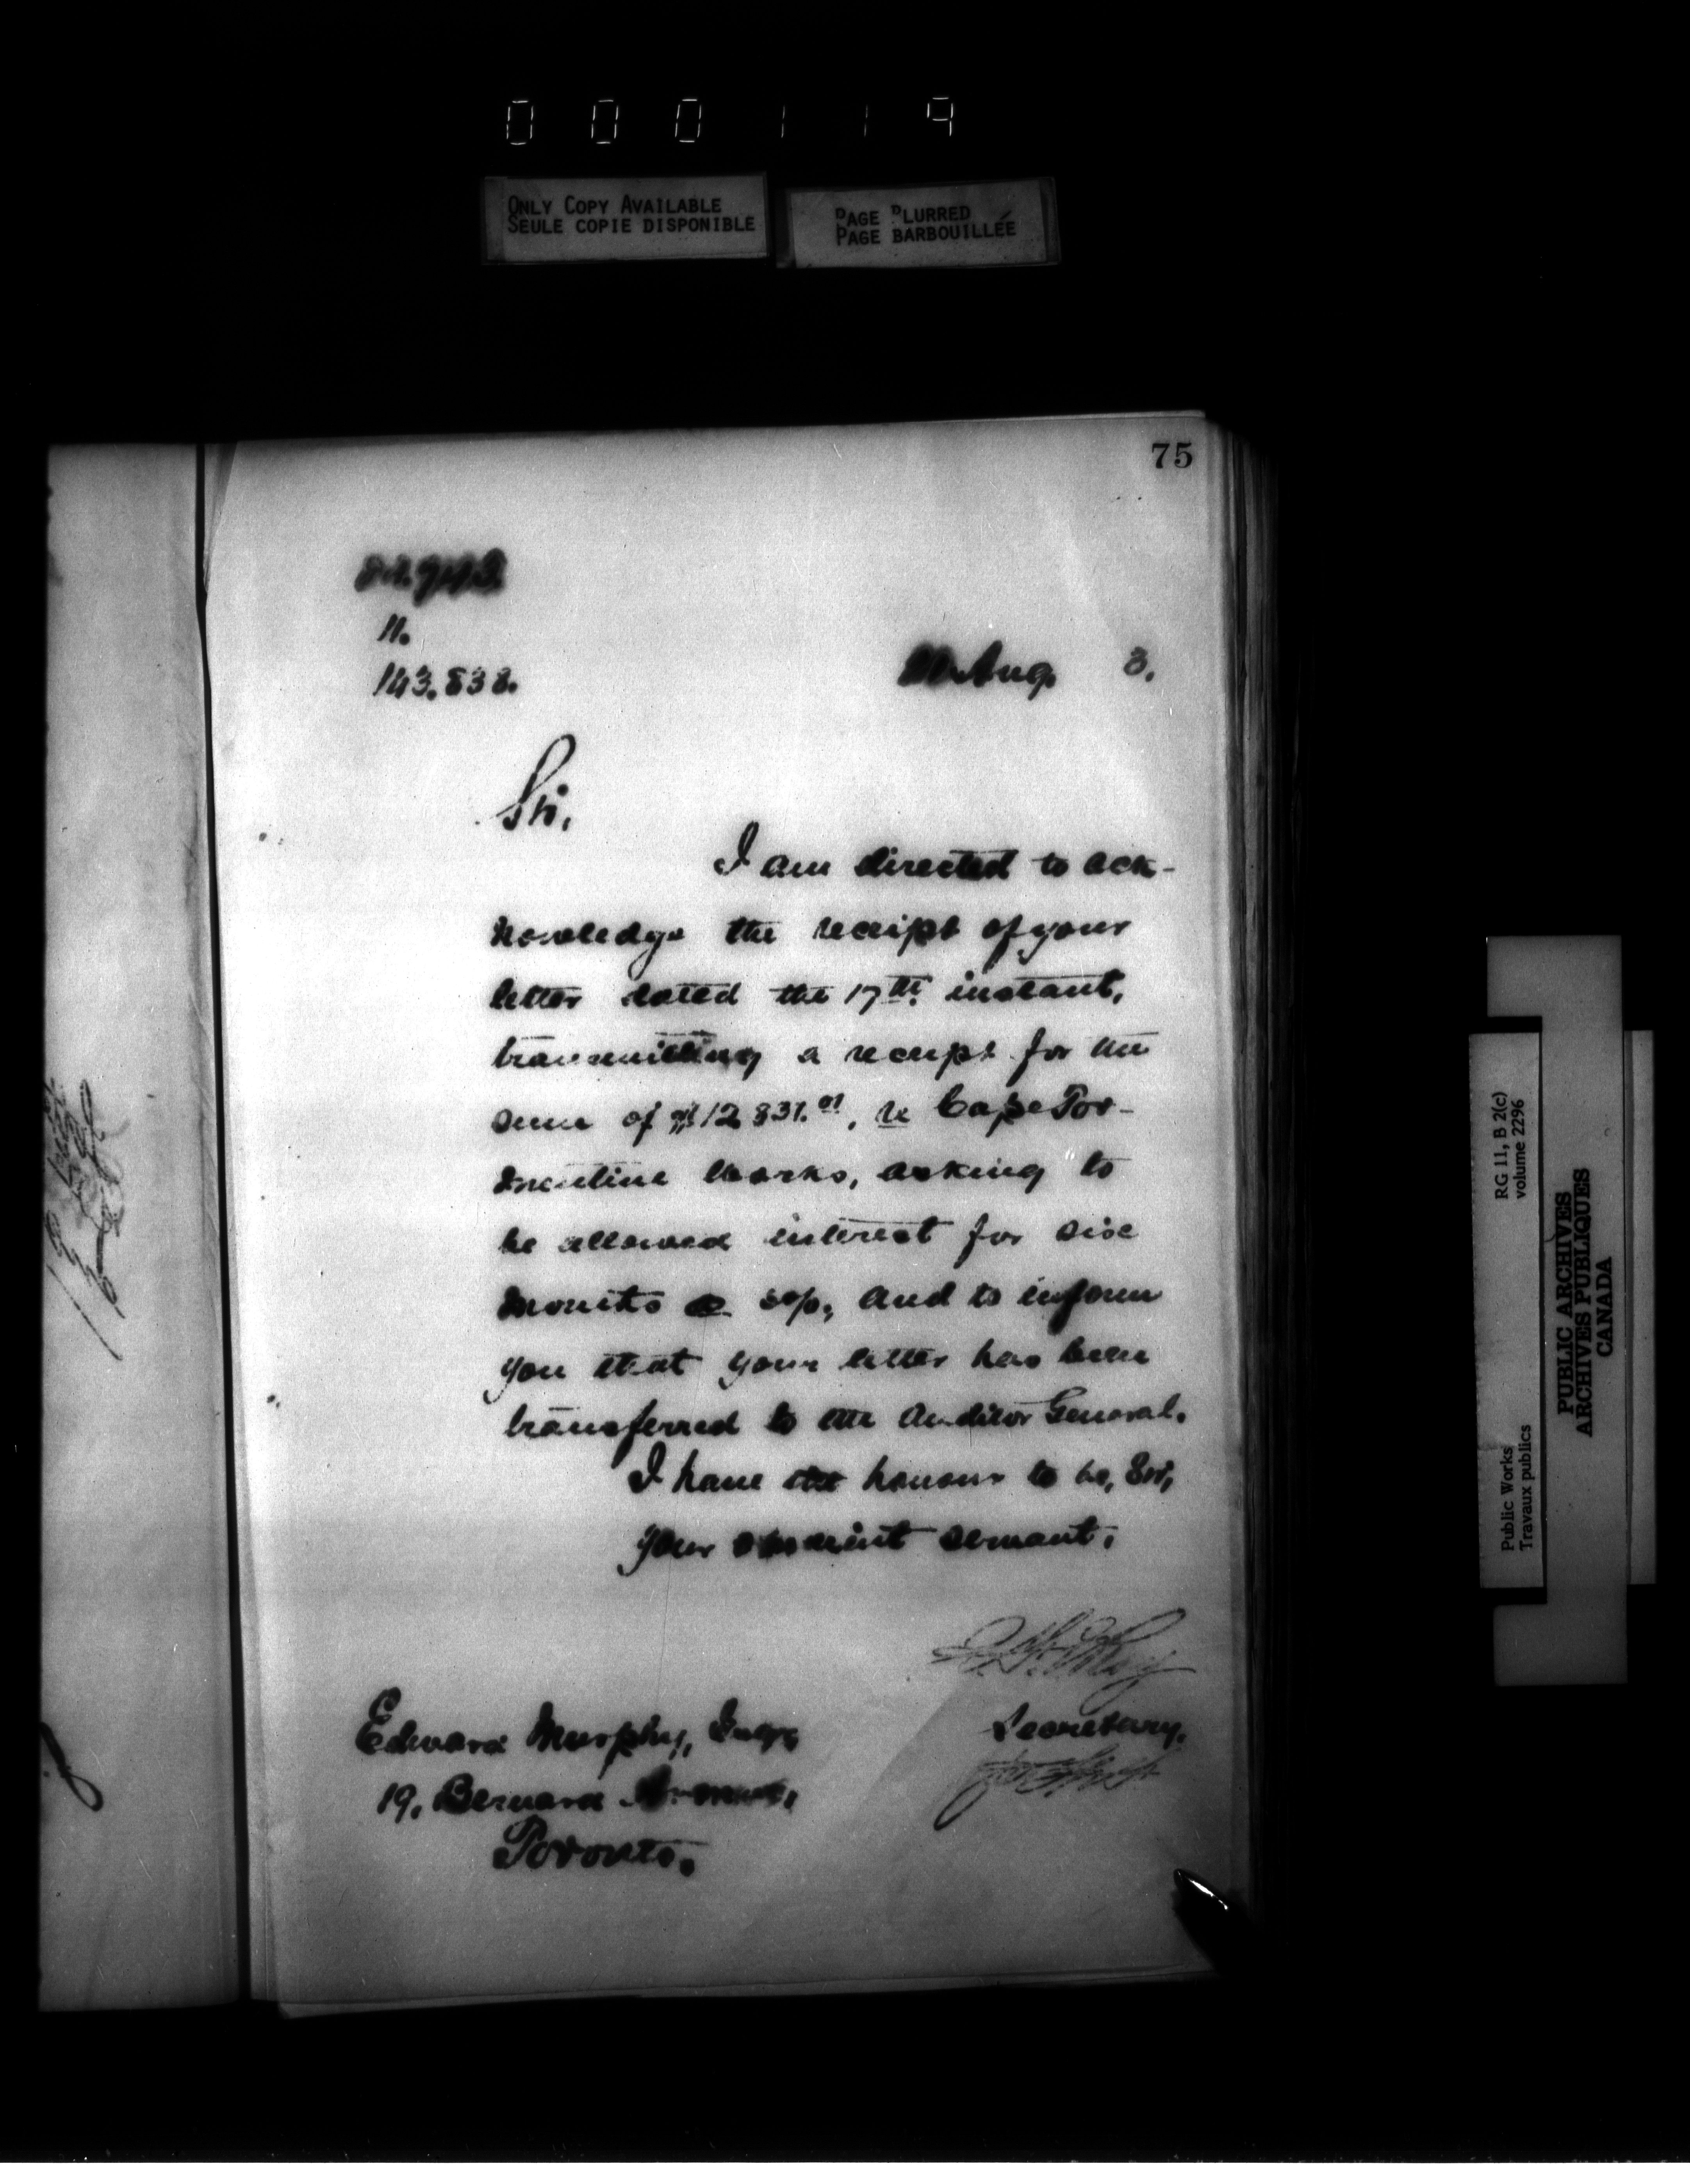 000119
ONLY COPY AVAILABLE
SEULE COPIE DISPONIBLE
PAGE BLURRED
PAGE BARBOUILLÉE
75
11.
143.838.
Aug. 3.
Sir,
I am directed to ack-
nowledge the receipt of your
letter dated the 17th. instant,
transmitting a receipt for the
sum of $12831.01, re Cape Tor-
mentine Works, asking to
be allowed interest for six
months and to inform
you that your letter has been
transferred to the Auditor General.
I have the honour to be, Sir,
Your obedient servant,
Secretary.
Edward Murphy, Esqr,
19, Bernard
Toronto.
RG 11, B 2(c)
volume 2296
Public Works
Travaux publics
PUBLIC ARCHIVES
ARCHIVES PUBLIQUES
CANADA